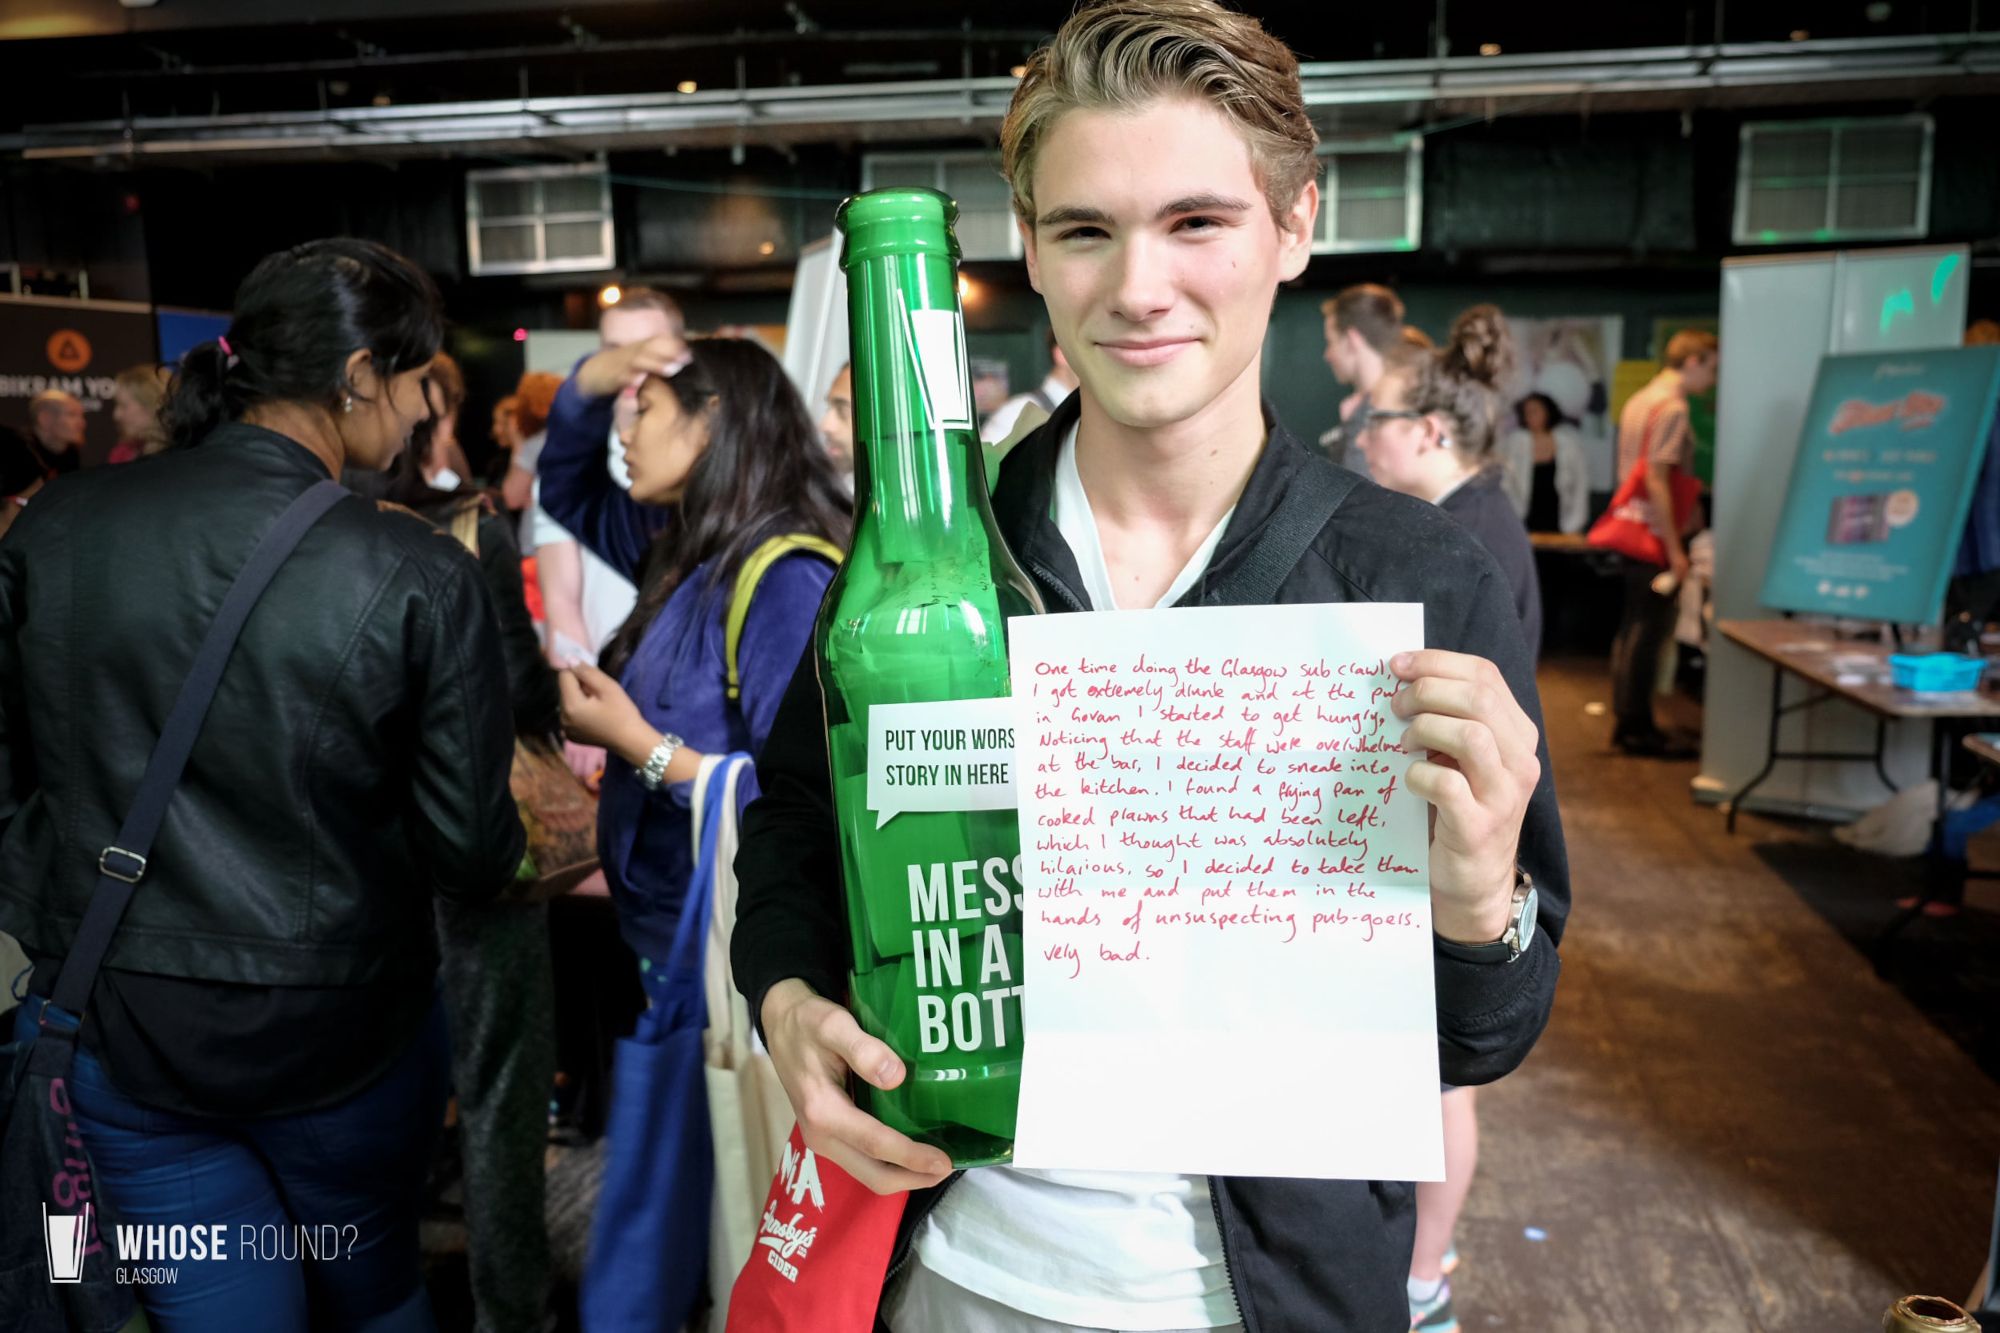 BIKRAM YO
PUT YOUR WORS
STORY IN HERE
MESS
IN A
BOTT
One time doing the Glasgow sub crawl,
I got extremely drunk and at the pu
in Govan I started to get hungry.
Noticing that the staff were overwhelme
at the bar, I decided to sneak into
the kitchen. I found a frying pan of
cooked prawns that had been left,
which I thought was absolutely
hilarious, so I decided to take them
with me and put them in the
hands of unsuspecting pub-goers.
very bad.
CIDER
WHOSE ROUND?
GLASGOW